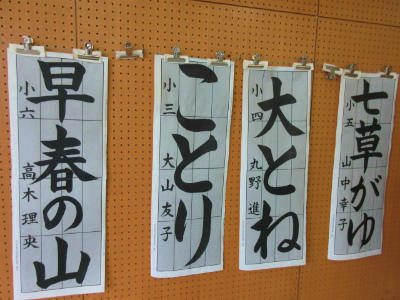 早春の山
小六 高木理央
ことり
小三 大山友子
大とね
小四 丸野進
七草がゆ
小五 山中幸子